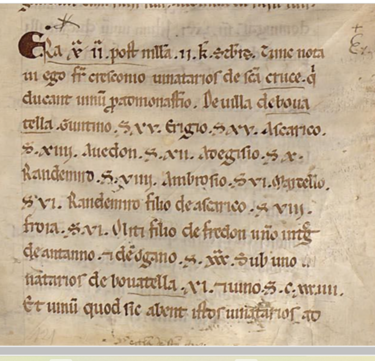 Era xͣ ii. post milla. ii. k. Tunc nota
ui ego fr̄ cresconio vinatarios de sc̄a cruce. q̄
ducant uinū p monastio. De villa deboua
tella. Guntino. S. xv. Erigio. S. xv. Ascarico.
S. xiiii. Auedon. S. xii. Adegisio. S. x.
Randemiro. S. viiii. Ambrosio. S vi. Martello.
S vi. Randemiro filio de ascarico. S viii.
froia. S. vi. filio de fredon uño
de antanno. S. Sub uno
natarios de bouatella. xi. uino. S. c.
Et uinū quod sic abent istos uinatarios ad